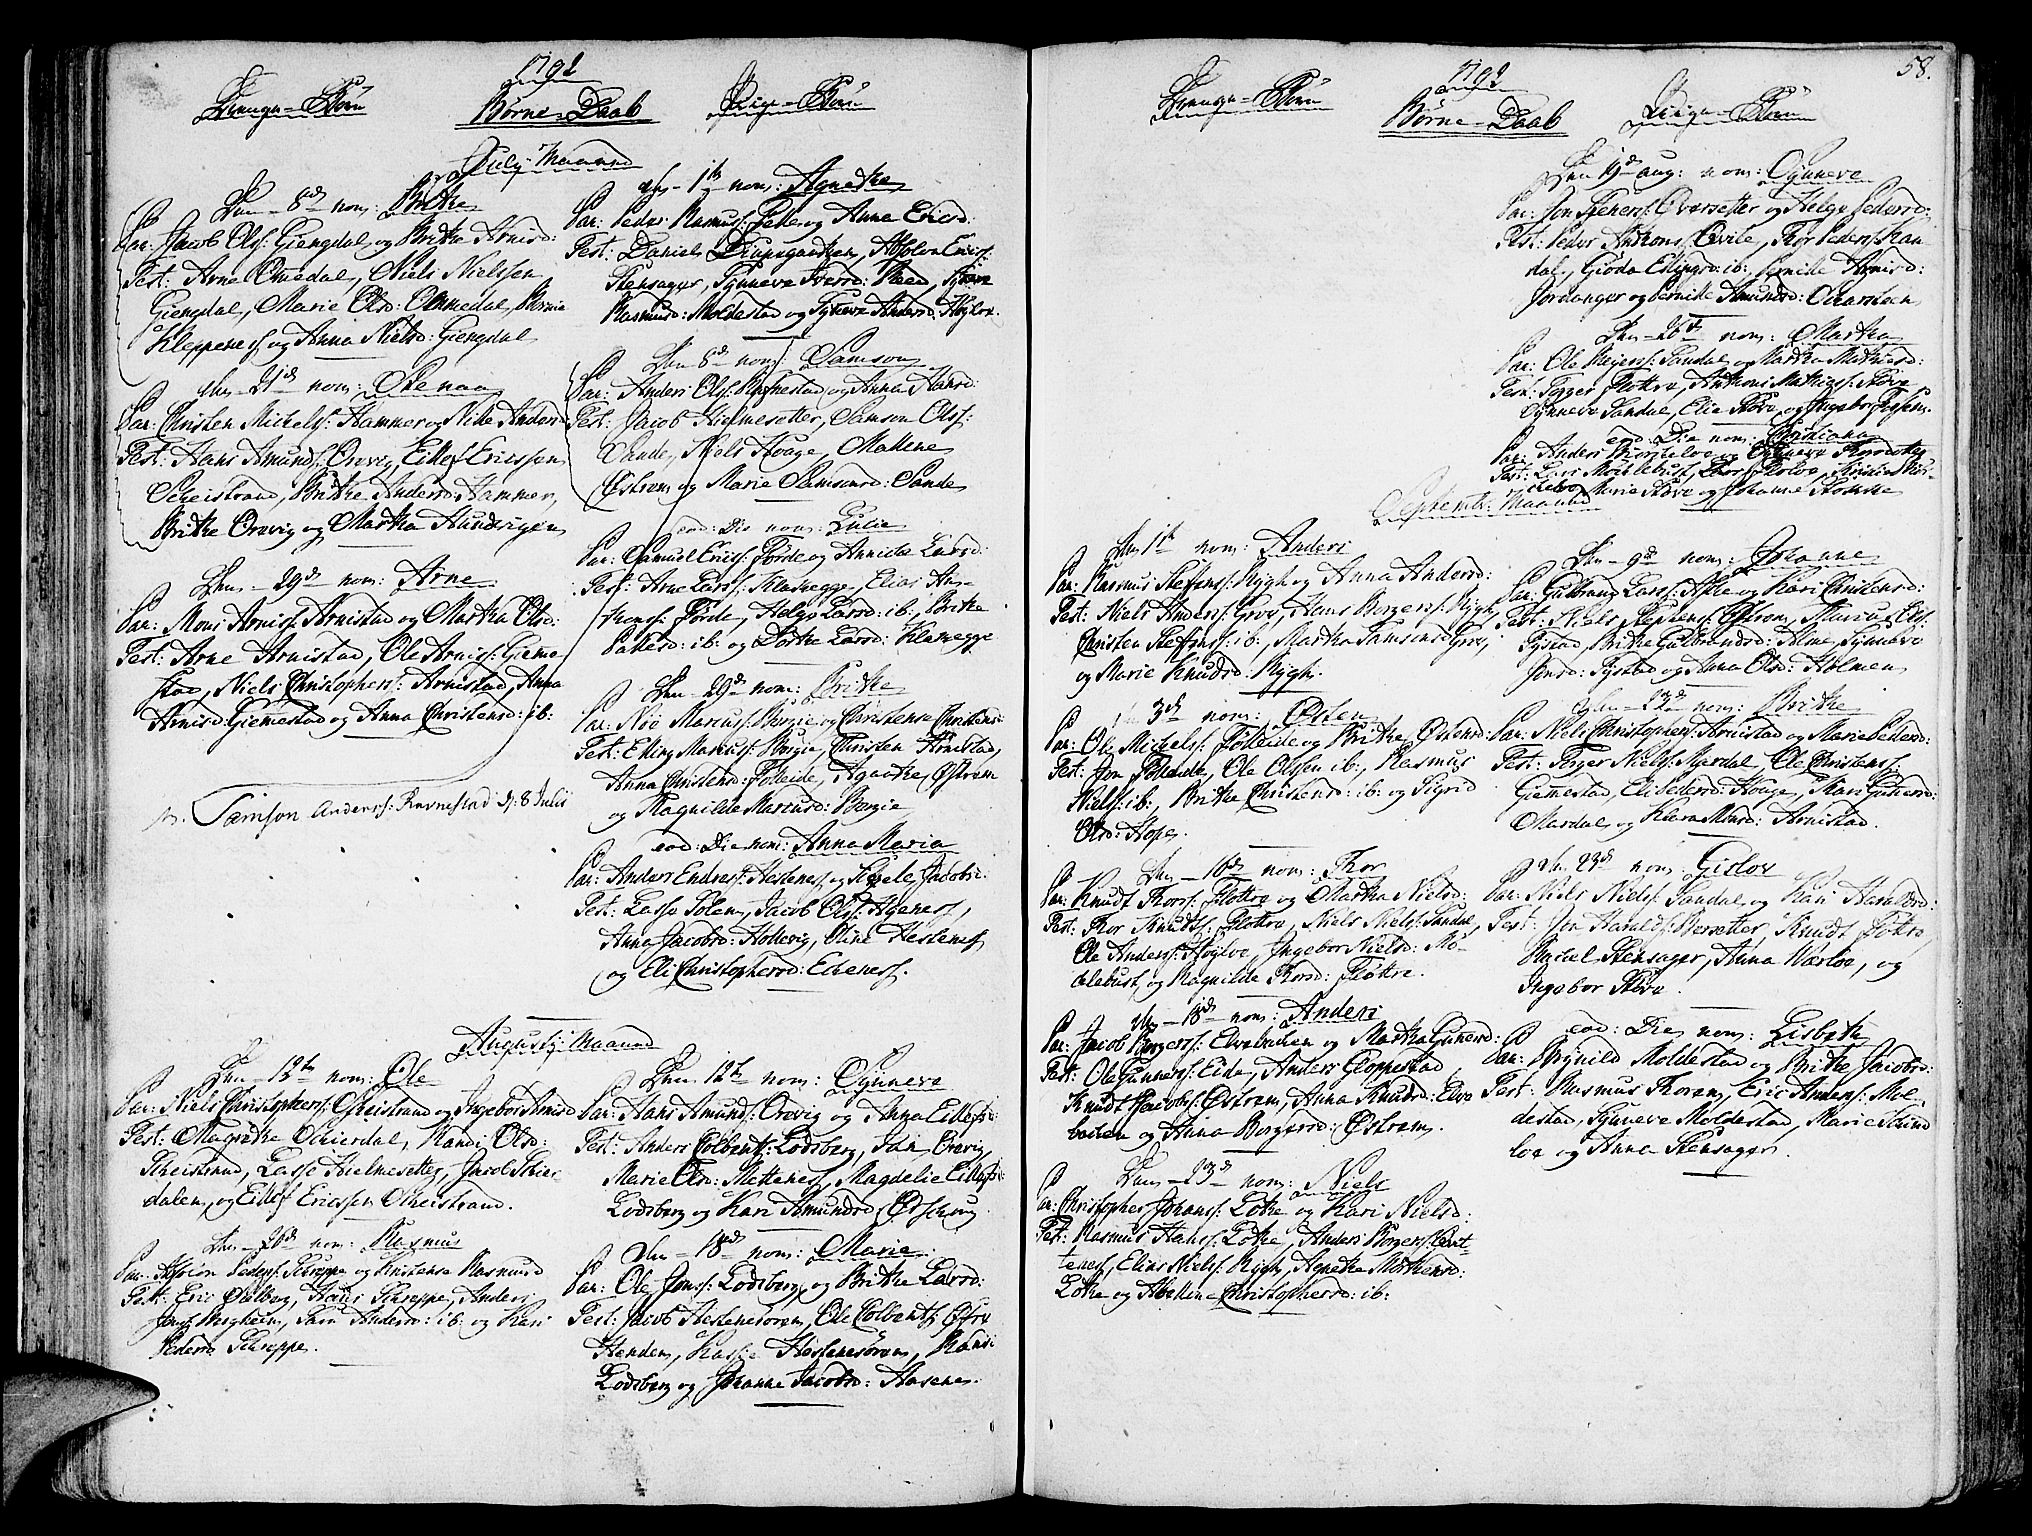 1792
Drenge-Børn
Børne-Daab
Pige-Børn
July-Maaned
Den 8de nom: Brithe
Par: Jacob Ols: Giengdal og Brithe Arnisd:
Test: Arne Ommedal, Niels Nielssen
Giengdal, Marie Olsd: Ommedal,
Kleppenes og Anna Nielsd: Giengdal
Den 21de nom: Stenaa
Par: Christen Michels: Hammer og Nille Andersd
Test: Hans Amunds: Orevig, Ellef Ericssen
Scheistrand, Brithe Andersd: Hammer,
Brithe Orevig og Martha Hundvigen
Den 29de nom: Arne
Par: Mons Arnis: Arnestad og Martha Olsd:
Test: Arne Arnistad, Ole Arnis: Gieme
stad, Niels Christophers: Arnistad, Anna
Arnisd: Giemestad og Anna Christensd: ib:
Samson Anders: Ravnestad d: 8 Julii
Den 1te nom: Agnethe
Par: Peder Rasmus: Felle og Anna Ericsd:
Test: Daniel Diupsgaarden, Absolon Erics:
Stensager, Synneve Iversd: Reed, Synneve
Rasmusd: Moldestad og Synneve Andersd: Høyloe.
Den 8de nom: Samson
Par: Anders Ols: Ravnestad og Anna Hansd:
Test: Jacob Hielmesetter, Samson Ols:
Sande, Niels Houge, Malene
Østrem og Marie Samsonsd: Sande
eod: Die nom: Lucie
Par: Samuel Erics: Førde og Annicke Larsd:
Test: Arne Lars: Klavegge, Elias An-
thons: Førde, Helge Larsd: ib:, Brithe
Pallesd: ib: og Dorthe Larsd: Klavegge
Den 29de nom: Brithe
Par: Siø Marcus: Borgie og Christense Christensd:
Test: Elling Marcus: Borgie, Christen Arnestad,
Anna Christensd: Følleide, Agathe Østrem
og Magnilda Marcusd: Borgie
eod: Die nom: Anna Maria
Par: Anders Endres: Hestenes og Sissele Jacobsd:
Test: Lasse Solem, Jacob Ols: Hyenes,
Anna Jacobsd: Hollevig, Oline Hestenes
og Eli Christophersd: Eidenes.
Augusty-Maaned
Den 12te nom: Ole
Par: Niels Christophers: Scheistrand og Ingebor Arnisd
Test: Magrethe Ochierdal, Randi Olsd:
Scheistrand, Lasse Hielmesetter, Jacob Schier
dalen, og Ellef Ericssen Scheistrand.
Den 26de nom: Rasmus
Par: Absolon Peders: Schreppe og Kristense Rasmusd
Test: Eric Dalberg, Hans Schreppe, Anders
Jons: Bergheim, Sara Andersd: ib: og Kari
Pedersd Schreppe.
Den 12te nom: Synneve
Par: Hans Amunds: Orevig og Anna Ellefsd:
Test: Anders Colbents: Lodsberg, Jan Orevig,
Marie Olsd: Mettenes, Magdelie Ellefsd:
Lodsberg og Kari Amundsd Ørschoug
Den 18de nom: Marie
Par: Ole Jons: Lodsberg og Brithe Larsd:
Test: Jacob Hestenesøren, Ole Colbents: Øfre
Henden, Kasse Hestenesøren, Randi
Lodsberg og Johanne Jacobsd: Aasenes.
58.
1792
Drenge-Børn
Børne-Daab
Pige-Børn
Den 19de aug: nom: Synneve
Par: Jon Steners: Ovresetter og Helge Pedersd:
Test: Peder Anthons: Qvile, Thor Peders: San
dal, Giøda Ellingsd: ib:, Pernille Arnisd:
Jordanger og Pernille Amundsd: Ochersteen
Den 26de nom: Martha
Par: Ole Reiers: Sandal og Martha Mathiesd:
Test: Torger Flottre, Anthoni Mathias: Støve,
Synneve Sandal, Elie Støve, og Ingebor
eod: Die nom: Christiana
Par: Anders og Synneve
Test: Lars Møchlebust,
Marie Støve og Johanne
Septembr: Maaned
Den 1te nom: Anders
Par: Rasmus Steffens: Rygh og Anna Andersd:
Test: Niels Anders: Gree, Hans Børgers: Rygh,
Christen Steffens: ib:, Martha Samsonsd Gree,
og Marie Knudsd: Rygh.
3de nom: Østen
Par: Ole Michels: Følleide og Brithe Østensd:
Test: Jon Følleide, Ole Olssen ib:, Rasmus
Niels: ib:, Brithe Christensd: ib: og Sigrid
Olsd: Hope.
Den 16de nom: Thor
Par: Knudt Thors: Flottre og Martha Nielsd:
Test: Thor Knudts: Flottre, Niels Niels: Sandal,
Ole Anders: Høyloe, Ingebor Nielsd: Mø-
chlebust, og Ragnilde Thorsd: Flottre.
Den 18de nom: Anders
Par: Jacob Børgers: Elvebachen og Martha Gunersd:
Test: Ole Gunners: Eide, Anders Gloppestad,
Knudt Jacobs: Østrem, Anna Knudsd: Elve
bachen og Anna Børgersd: Østrem.
Den 23de nom: Niels
Par: Christopher Johans: Lothe og Kari Nielsd:
Test: Rasmus Hans: Lothe, Anders Børgers:
tenes, Elias Niels: Rygh, Agnethe Mathensd:
Lothe og Abelone Christophersd: ib:
Den 9de nom: Johanne
Par: Gulbrand Lars: Alme og Kari Christensd:
Test: Niels Steffens: Østrem, Marius Ols:
Systad, Brithe Gulbrandsd: Alme, Synneve
Jonsd: Systad og Anna Olsd: Holmen
Den 22de nom: Brithe
Par: Niels Christophers: Arnestad og Marie Pedersd:
Test: Torger Niels: Myrdal, Ole Christens:
Giemestad, Eli Pedersd: Houge, Mari Gunersd:
Mardal og Klara Monsd: Arnistad.
Den 23de nom: Gislov
Par: Niels Niels: Sandal og Kari Haraldsd:
Test: Jon Haralds: Bersetter, Knudt Flottre,
Rachel Stensager, Anna Wærloe, og
Ingebor Støve.
eod: Die nom: Lisbeth
Par: Brynild Moldestad og Brithe Jacobsd:
Test: Rasmus Thorem, Eric Anders: Mol-
destad, Synneve Moldestad, Marie Schind
loe og Anna Stensager.